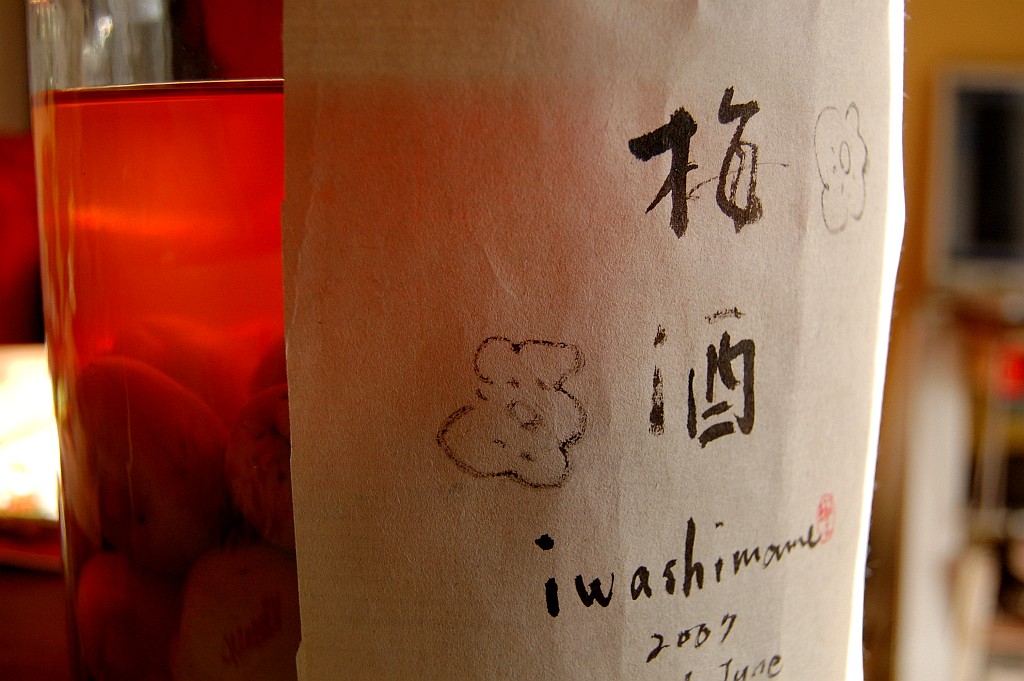 梅酒
iwashimame
2007
June